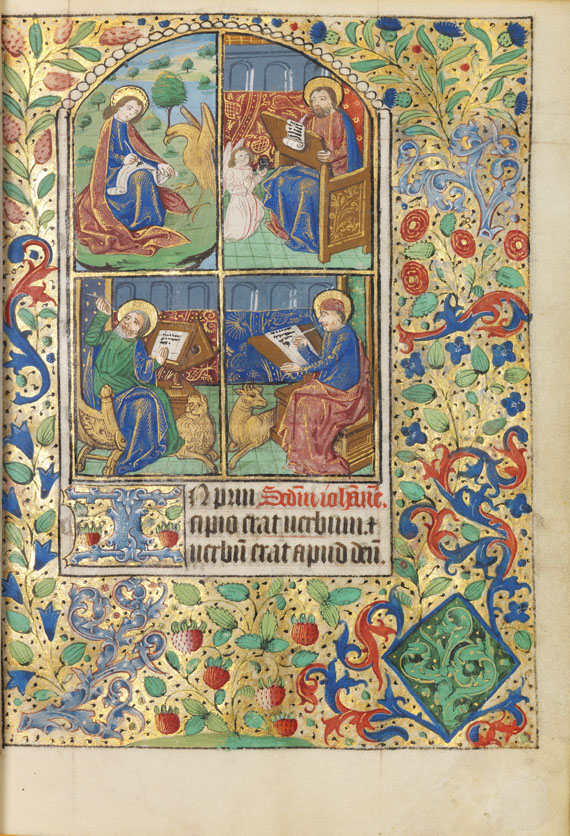 IN prin Scdm̄ iohānē.
cipio erat uerbum &
uerbū erat apud deū.